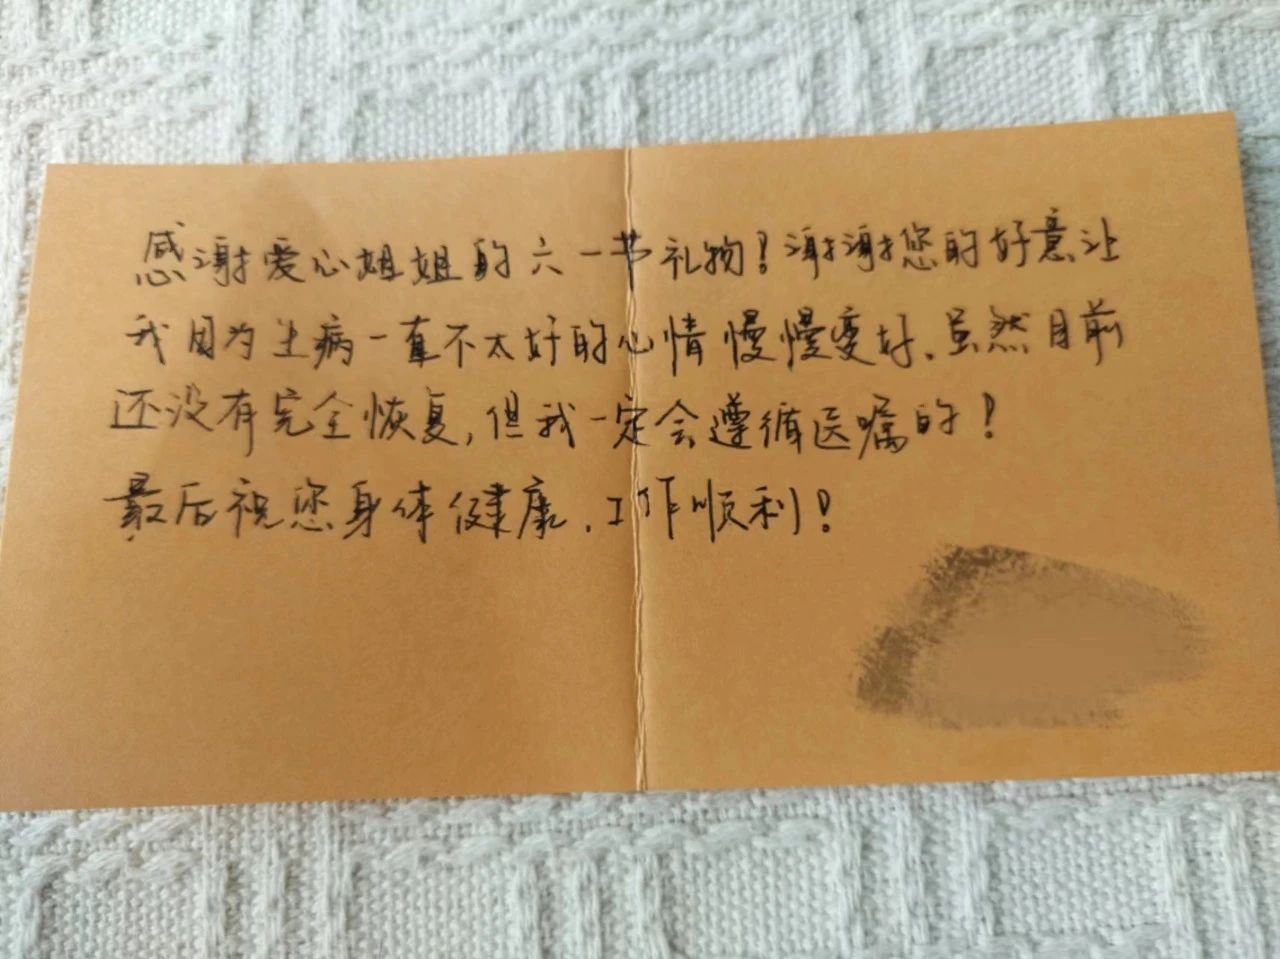 感谢爱心姐姐的六一节礼物!谢谢您的好意让
我因为生病一直不太好的心情慢慢变好.虽然目前
还没有完全恢复,但我一定会遵循医嘱的!
最后祝您身体健康.工作顺利!